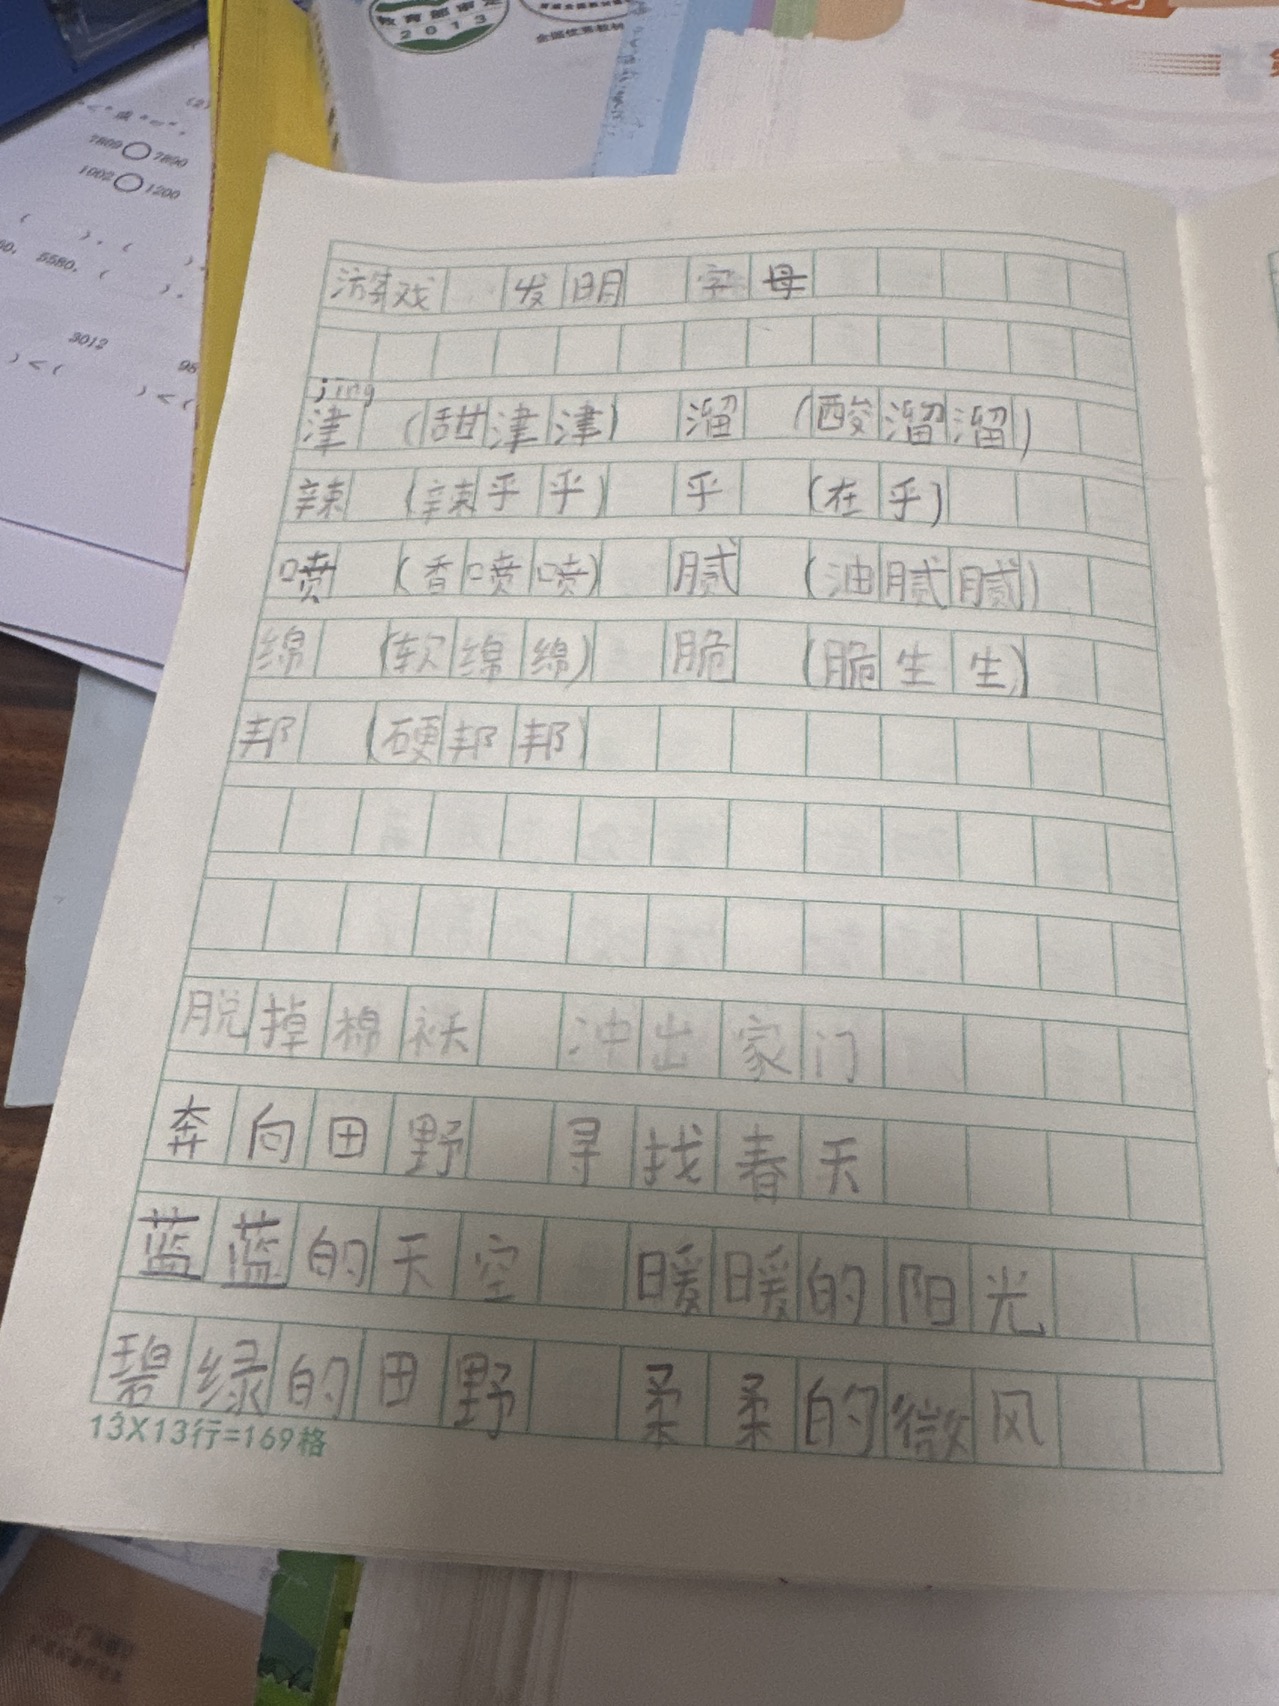 教育部审定
2013
全国优秀教材
(2)
7809○7890
1002○1200
5580,
3012
游戏 发明 字母
jing
津 (甜津津) 溜 (酸溜溜)
辣 (辣乎乎) 乎 (在乎)
喷 (香喷喷) 腻 (油腻腻)
绵 (软绵绵) 脆 (脆生生)
邦 (硬邦邦)
脱掉棉袄 冲出家门
奔向田野 寻找春天
蓝蓝的天空 暖暖的阳光
碧绿的田野 柔柔的微风
13X13行=169格